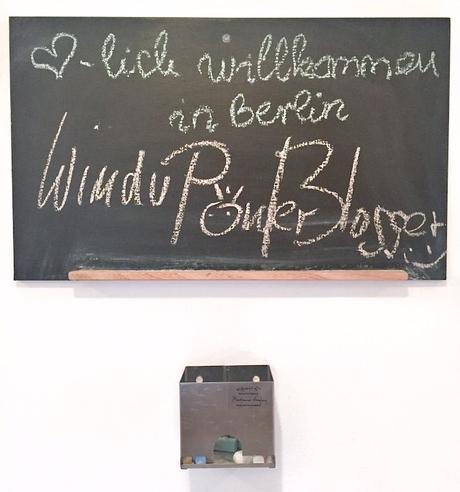 ♡-lich willkommen
in Berlin
Windu PowerBlogger